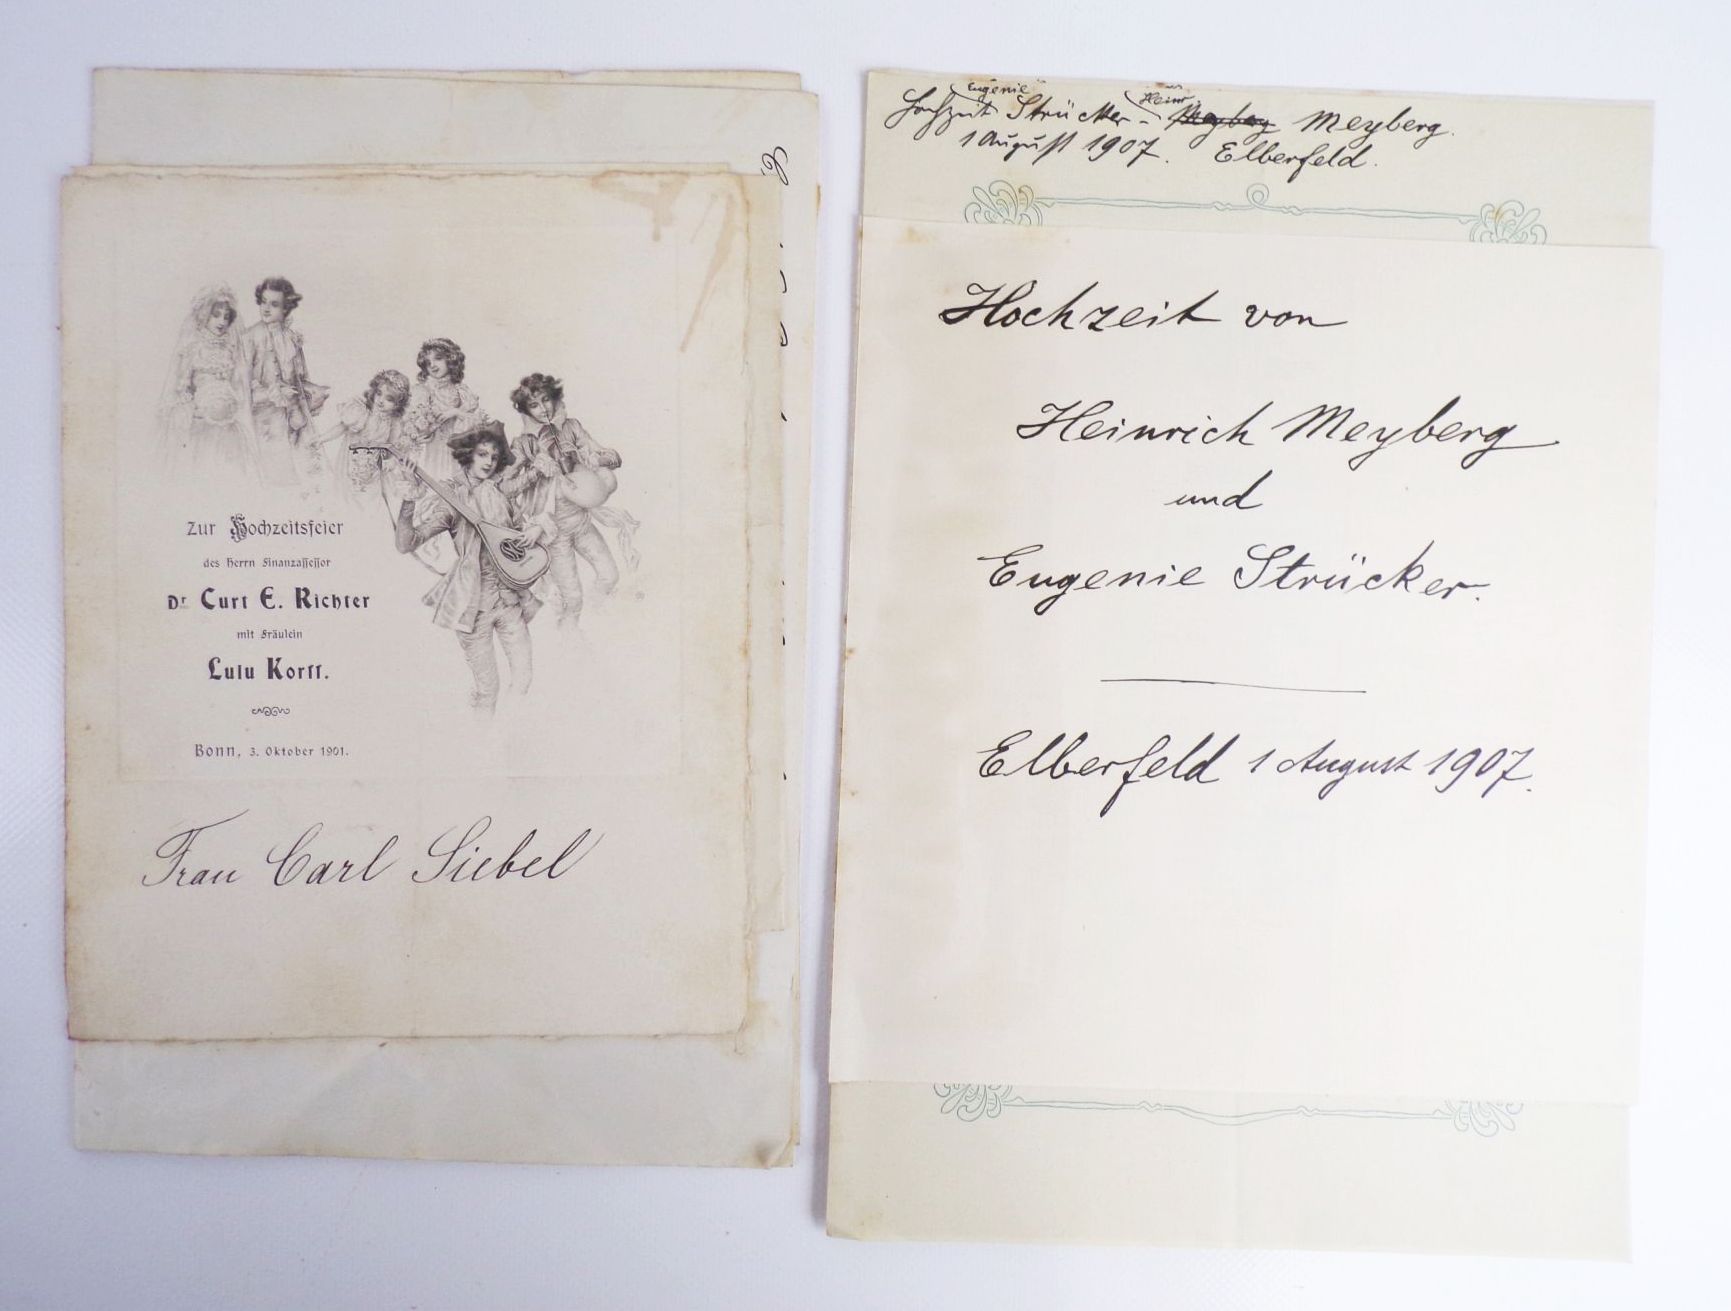 Zur Hochzeitsfeier
des Herrn Finanzassessor
Dr Curt E. Richter
mit Fräulein
Lulu Korff.
Bonn, 3. Oktober 1901.
Frau Carl Siebel
Eugenie Heinr
Hochzeit Strücker - Meyberg Meyberg.
1 August 1907. Elberfeld.
Hochzeit von
Heinrich Meyberg
und
Eugenie Strücker.
Elberfeld 1 August 1907.